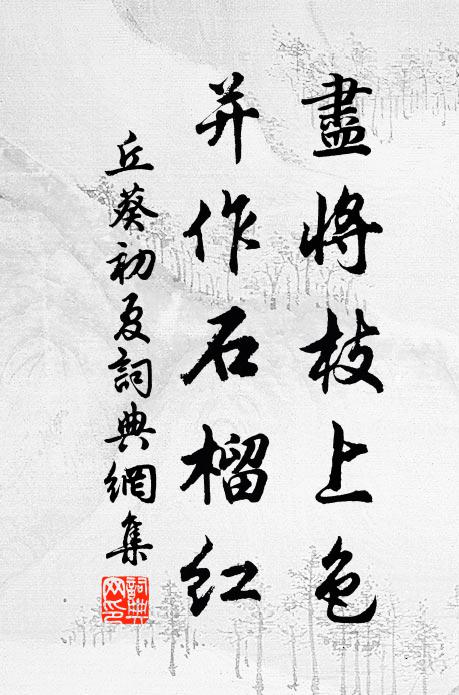 盡將枝上色
并作石榴紅
丘葵初夏詞典網集
詞典網印